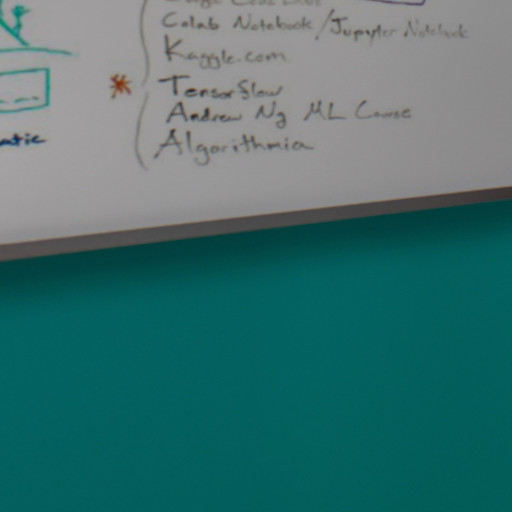 Colab Notebook/Jupyter Notebook
Kaggle.com
TensorFlow
Andrew Ng ML Course
Algorithmia